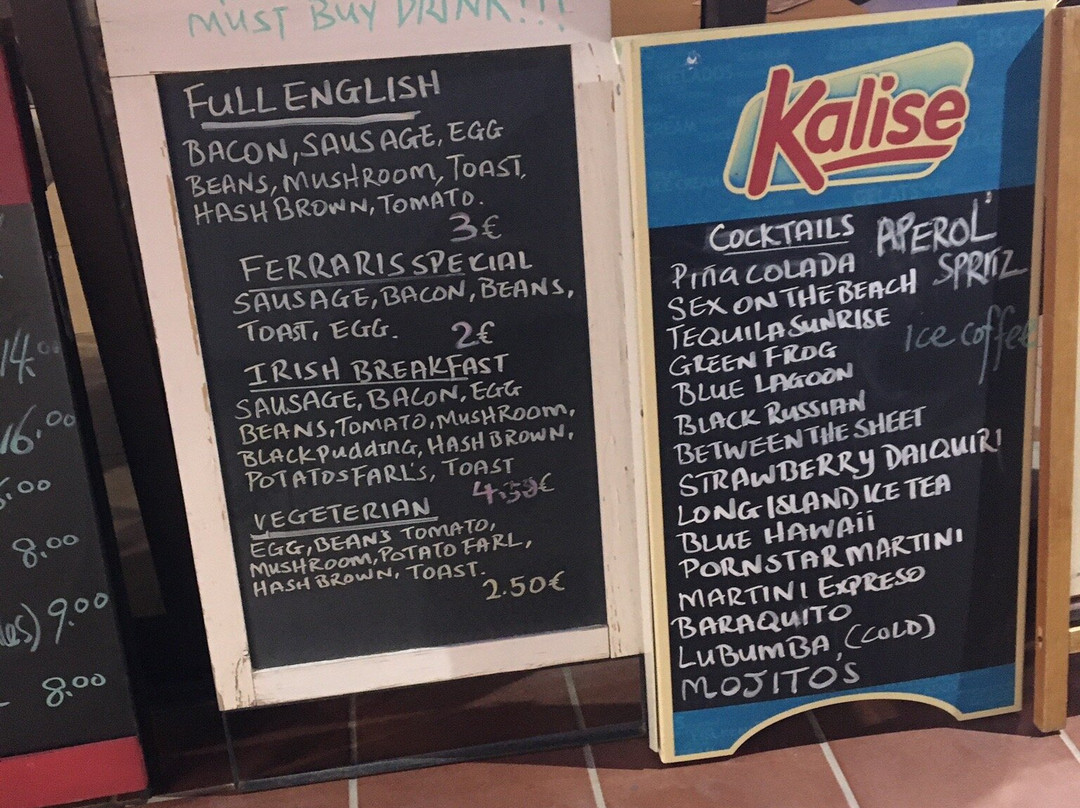 MUST BUY DRINK!!!
FULL ENGLISH
BACON, SAUSAGE, EGG
BEANS, MUSHROOM, TOAST,
HASH BROWN, TOMATO.
3€
FERRARIS SPECIAL
SAUSAGE, BACON, BEANS,
TOAST, EGG. 2€
IRISH BREAKFAST
SAUSAGE, BACON, EGG
BEANS, TOMATO, MUSHROOM,
BLACK PUDDING, HASH BROWN,
POTATOS FARL'S, TOAST
4.50€
VEGETERIAN
EGG, BEANS TOMATO,
MUSHROOM, POTATO FARL,
HASH BROWN, TOAST.
2.50€
Kalise
COCKTAILS
APEROL
SPRITZ
Ice coffee
PIÑA COLADA
SEX ON THE BEACH
TEQUILA SUNRISE
GREEN FROG
BLUE LAGOON
BLACK RUSSIAN
BETWEEN THE SHEET
STRAWBERRY DAIQUIRI
LONG ISLAND ICE TEA
BLUE HAWAII
PORNSTAR MARTINI
MARTINI EXPRESO
BARAQUITO
LUBUMBA, (COLD)
MOJITO'S
14.00
16.00
8.00
9.00
8.00